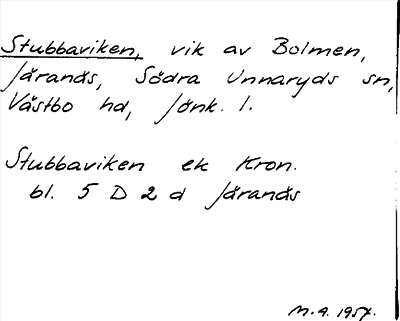 Stubbaviken, vik av Bolmen,
Järanäs, Södra Unnaryds sn,
Västbo hd, Jönk. l.
Stubbaviken ek Kron.
bl. 5 D 2 d Järanäs
M.A. 1957.